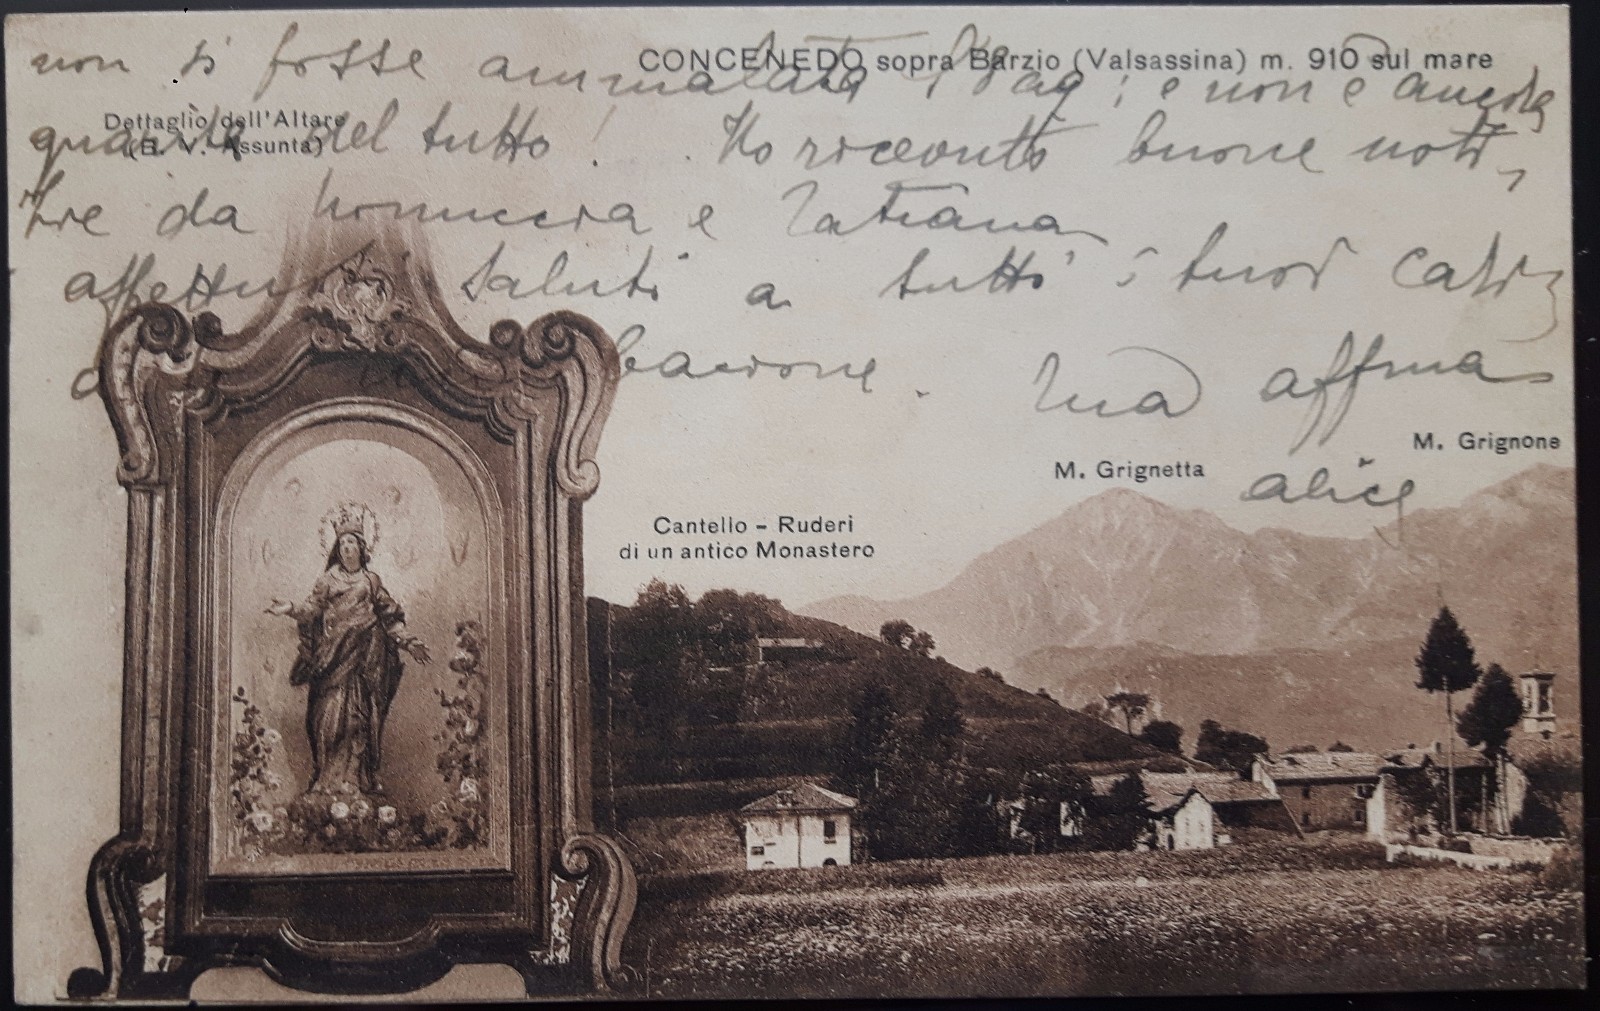 non si fosse ammalata
CONCENEDO sopra Barzio (Valsassina) m. 910 sul mare
e non è ancora
Dettaglio dell'Altare
(B. V. Assunta)
del tutto! Ho ricevuto buone noti,
zie da e Tatiana
affettuosi saluti a tutti i tuoi cari,
bacione. tua affma
alice
M. Grignone
M. Grignetta
Cantello - Ruderi
di un antico Monastero